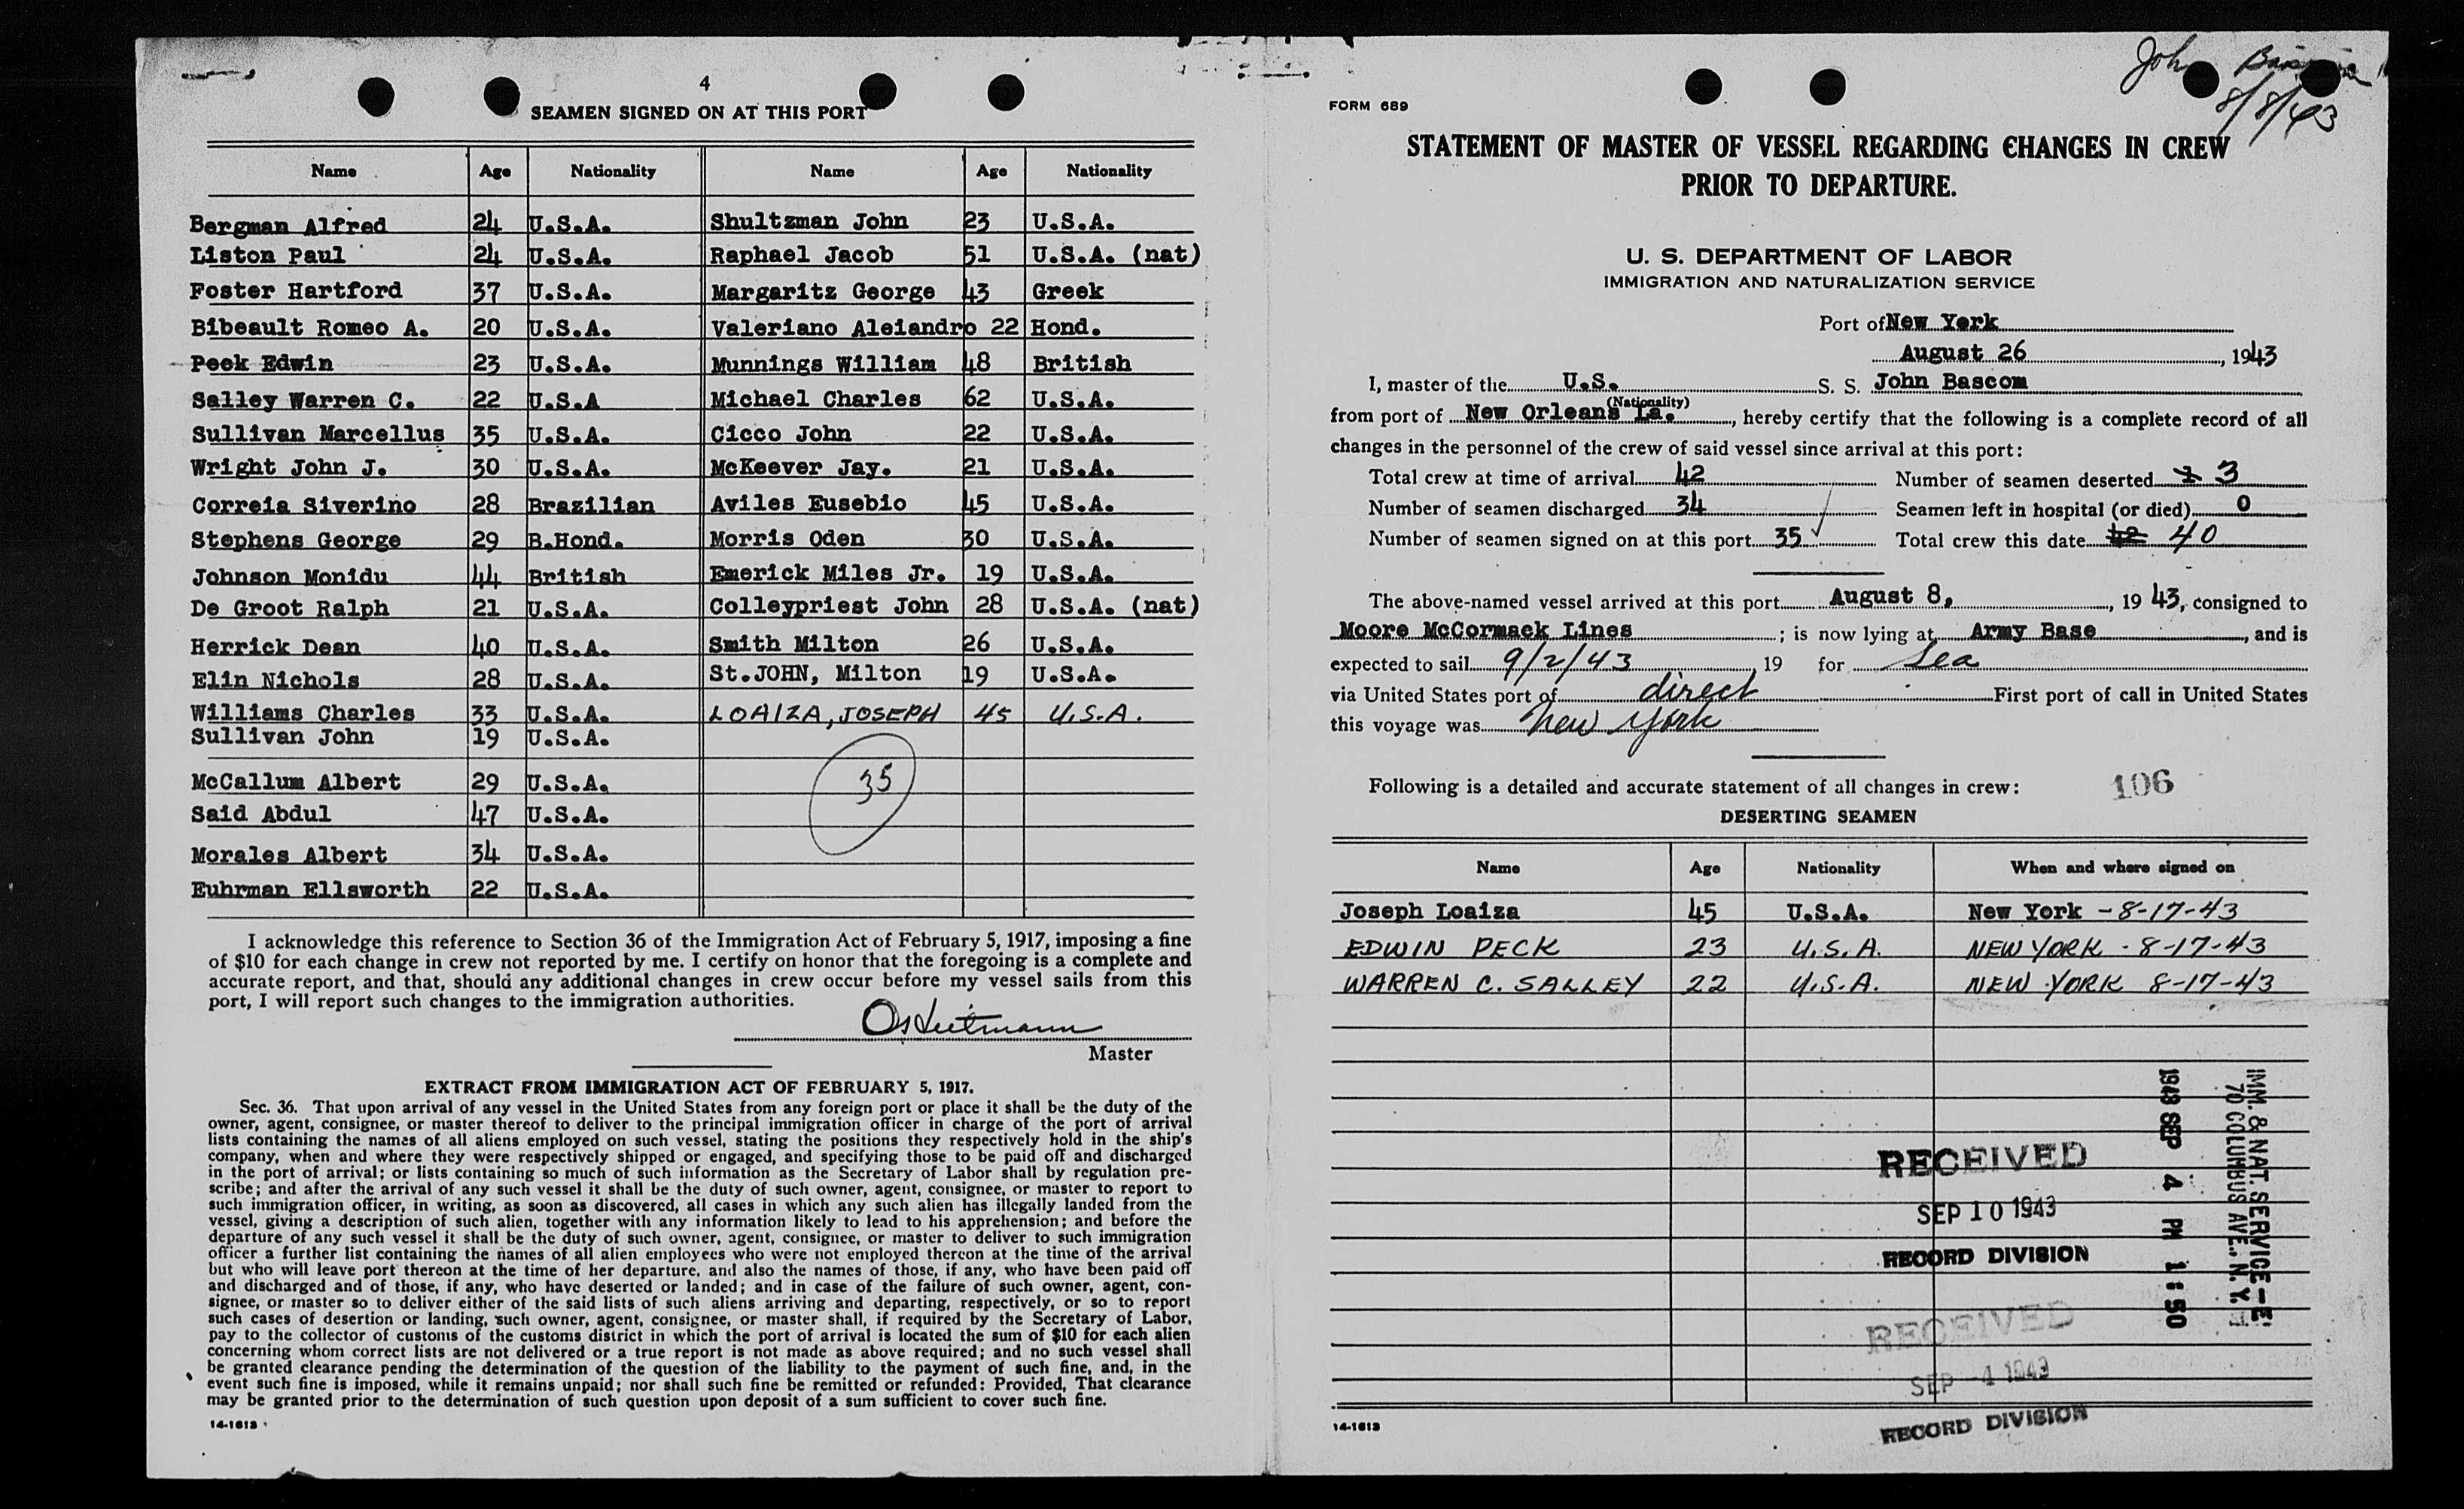 4
SEAMEN SIGNED ON AT THIS PORT
Name Age Nationality Name Age Nationality
Bergman Alfred 24 U.S.A. Shultzman John 23 U.S.A.
Liston Paul 24 U.S.A. Raphael Jacob 51 U.S.A. (nat)
Foster Hartford 37 U.S.A. Margaritz George 43 Greek
Bibeault Romeo A. 20 U.S.A. Valeriano Aleiandro 22 Hond.
Peek Edwin 23 U.S.A. Munnings William 48 British
Salley Warren C. 22 U.S.A Michael Charles 62 U.S.A.
Sullivan Marcellus 35 U.S.A. Cicco John 22 U.S.A.
Wright John J. 30 U.S.A. McKeever Jay. 21 U.S.A.
Correia Siverino 28 Brazilian Aviles Eusebio 45 U.S.A.
Stephens George 29 B.Hond. Morris Oden 30 U.S.A.
Johnson Monidu 44 British Emerick Miles Jr. 19 U.S.A.
De Groot Ralph 21 U.S.A. Colleypriest John 28 U.S.A. (nat)
Herrick Dean 40 U.S.A. Smith Milton 26 U.S.A.
Elin Nichols 28 U.S.A. St.JOHN, Milton 19 U.S.A.
Williams Charles 33 U.S.A. LOAIZA, JOSEPH 45 U.S.A.
Sullivan John 19 U.S.A.
McCallum Albert 29 U.S.A. 35
Said Abdul 47 U.S.A.
Morales Albert 34 U.S.A.
Euhrman Ellsworth 22 U.S.A.
I acknowledge this reference to Section 36 of the Immigration Act of February 5, 1917, imposing a fine
of $10 for each change in crew not reported by me. I certify on honor that the foregoing is a complete and
accurate report, and that, should any additional changes in crew occur before my vessel sails from this
port, I will report such changes to the immigration authorities.
Master
EXTRACT FROM IMMIGRATION ACT OF FEBRUARY 5, 1917.
Sec. 36. That upon arrival of any vessel in the United States from any foreign port or place it shall be the duty of the
owner, agent, consignee, or master thereof to deliver to the principal immigration officer in charge of the port of arrival
lists containing the names of all aliens employed on such vessel, stating the positions they respectively hold in the ship's
company, when and where they were respectively shipped or engaged, and specifying those to be paid off and discharged
in the port of arrival; or lists containing so much of such information as the Secretary of Labor shall by regulation pre-
scribe; and after the arrival of any such vessel it shall be the duty of such owner, agent, consignee, or master to report to
such immigration officer, in writing, as soon as discovered, all cases in which any such alien has illegally landed from the
vessel, giving a description of such alien, together with any information likely to lead to his apprehension; and before the
departure of any such vessel it shall be the duty of such owner, agent, consignee, or master to deliver to such immigration
officer a further list containing the names of all alien employees who were not employed thereon at the time of the arrival
but who will leave port thereon at the time of her departure, and also the names of those, if any, who have been paid off
and discharged and of those, if any, who have deserted or landed; and in case of the failure of such owner, agent, con-
signee, or master so to deliver either of the said lists of such aliens arriving and departing, respectively, or so to report
such cases of desertion or landing, such owner, agent, consignee, or master shall, if required by the Secretary of Labor,
pay to the collector of customs of the customs district in which the port of arrival is located the sum of $10 for each alien
concerning whom correct lists are not delivered or a true report is not made as above required; and no such vessel shall
be granted clearance pending the determination of the question of the liability to the payment of such fine, and, in the
event such fine is imposed, while it remains unpaid; nor shall such fine be remitted or refunded: Provided, That clearance
may be granted prior to the determination of such question upon deposit of a sum sufficient to cover such fine.
14-1613
John
8/8/43
FORM 689
STATEMENT OF MASTER OF VESSEL REGARDING CHANGES IN CREW
PRIOR TO DEPARTURE.
U. S. DEPARTMENT OF LABOR
IMMIGRATION AND NATURALIZATION SERVICE
Port of New York
August 26, 1943
I, master of the U.S. S. S. John Bascom
(Nationality)
from port of New Orleans La., hereby certify that the following is a complete record of all
changes in the personnel of the crew of said vessel since arrival at this port:
Total crew at time of arrival 42 Number of seamen deserted 1 3
Number of seamen discharged 34 Seamen left in hospital (or died) 0
Number of seamen signed on at this port 35 ✓ Total crew this date 42 40
The above-named vessel arrived at this port August 8, 1943, consigned to
Moore McCormack Lines; is now lying at Army Base, and is
expected to sail 9/2/43, 19 for Sea
via United States port of direct First port of call in United States
this voyage was New York
Following is a detailed and accurate statement of all changes in crew: 106
DESERTING SEAMEN
Name Age Nationality When and where signed on
Joseph Loaiza 45 U.S.A. New York - 8-17-43
EDWIN PECK 23 U.S.A. NEW YORK - 8-17-43
WARREN C. SALLEY 22 U.S.A. NEW YORK 8-17-43
RECEIVED
SEP 10 1943
RECORD DIVISION
RECEIVED
SEP -4 1943
RECORD DIVISION
IMM. & NAT. SERVICE-E
70 COLUMBUS AVE., N.Y.
1943 SEP 4 PM 1:50
14-1613